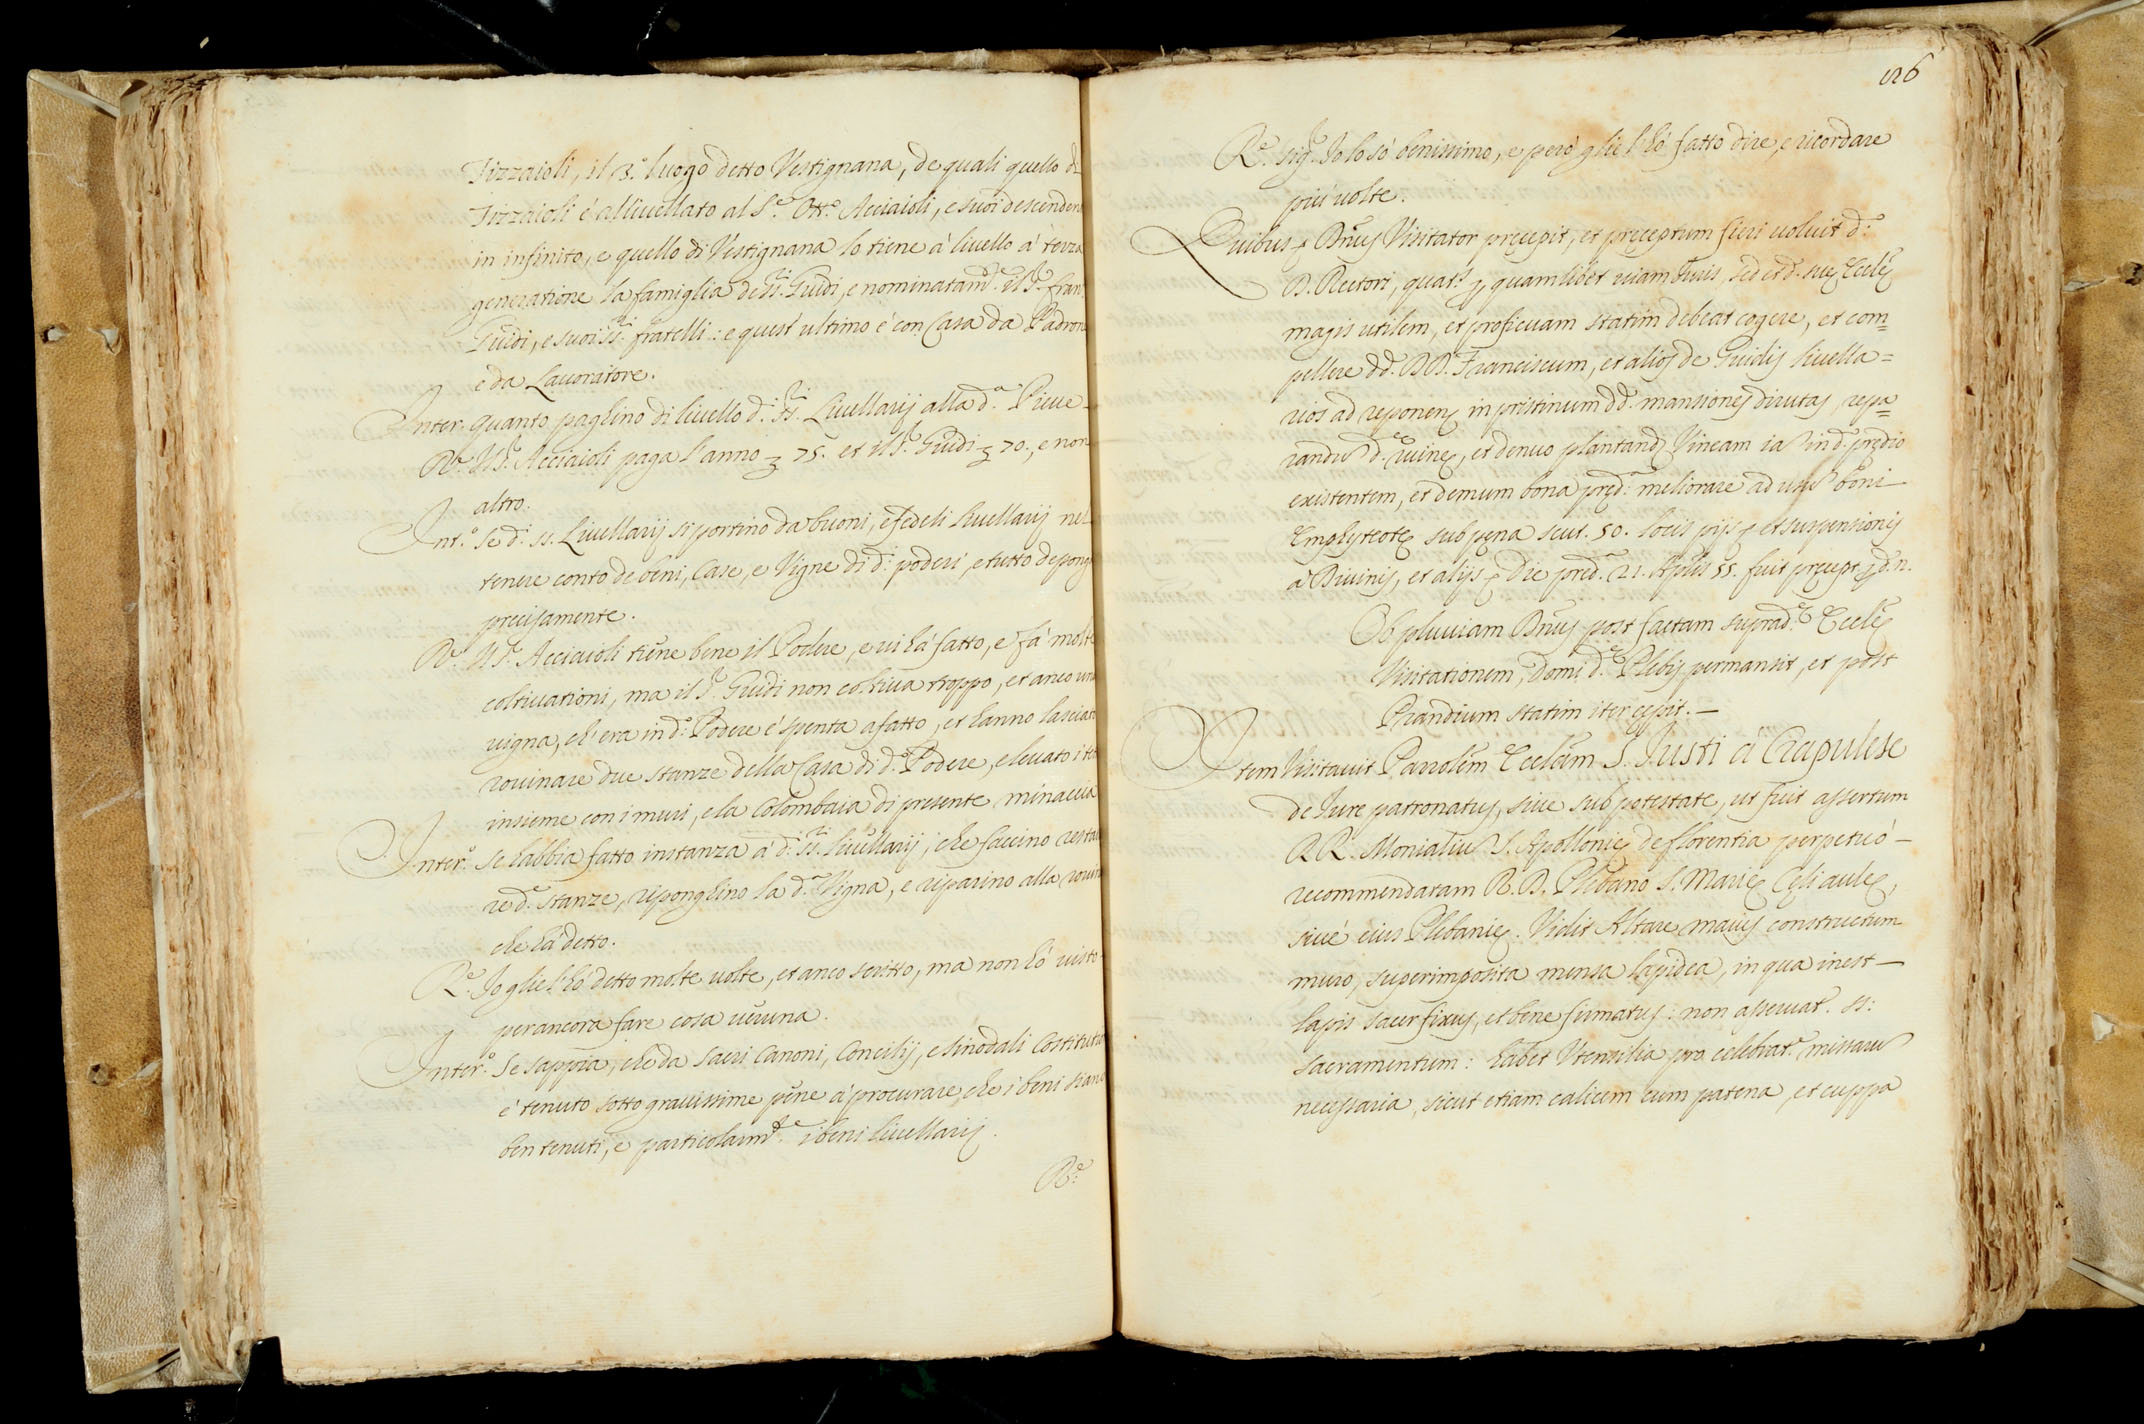 Tizzaioli, il 3.º luogo detto Vestignana, de quali quello di
Tizzaioli è alliuellato al S.e Ott.º Acciaioli, e suoi descenden
in infinito, e quello di Vestignana lo tiene à liuello à terza
generatione la famiglia de SS.ri Guidi, e nominatam.te il S.r fran
Guidi, e suoi SS.ri fratelli: e quest'ultimo è con Casa da Padron
e da Lauoratore.
Inter. quanto paghino di liuello d.i SS.ri Liuellarij alla d.a Pieue
R.e Il S.r Acciaioli paga l'anno 75. et il S.r Guidi 70., e non
altro.
Int.º se d.i ss. Liuellarij si portino da buoni, e fedeli liuellarij nel
tenere conto de beni, Case, e Vigne di d.i poderi, e tutto depong
precisamente.
R.e Il S.r Acciaioli tiene bene il Podere, e ui hà fatto, e fà molte
coltiuationi, ma il S.r Guidi non coltiua troppo, et anco una
uigna, ch'era in d.º Podere è spenta afatto, et hanno lasciato
rouinare due stanze della Casa di d.º Podere, eleuato i te
insieme con i muri, e la Colombaia di presente minaccia
Inter.º se habbia fatto instanza à d.i SS.ri liuellarij, che faccino restau
re d.e stanze, riponghino la d.a Vigna, e riparino alla rouin
che hà detto.
R.e Io gliel'hò detto molte uolte, et anco scritto, ma non hò uisto
per ancora fare cosa ueruna.
Inter.º se sappia, che da sacri Canoni, Concilij, e sinodali Costitutio
è tenuto sotto grauissime pene à procurare, che i beni stano
ben tenuti, e particolarm.te i beni liuellarij.
R.e
126
R.e sig.r Io lo sò benissimo, e però gliel'hò fatto dire, e ricordare
più uolte.
Quibus Dñus Visitator precepit, et preceptum fieri uoluit d.º
D. Rectori, quat.s quamlibet uiam Iuris, sed et d. sue Eccle
magis utilem, et proficuam statim debeat cogere, et com=
pellere dd. DD. Franciscum, et alios de Guidis liuella=
rios ad reponen in pristinum dd. mansiones dirutas, repa=
randu d. ruine, et denuo plantand Vineam ia in d. predio
existentem, et demum bona pred.a meliorare ad usu boni
Emphyteote sub pena scut. 50. locis pijs et suspensionis
à Diuinis, et alijs Die pred. 21. Aprilis 55. fuit precept. d. n.
Ob pluuiam Dñus post factam suprad.e Eccle
Visitationem, Domi d.e Plebis permansit, et post
Prandium statim iter cepit.—
Item Visitauit Parrolem Eccl̃am S. Iusti à Crapulese
de Iure patronatus, siue sub potestate, ut fuit assertum
RR. Monialiu S. Apollonie de florentia perpetuò—
recommendatam R. D. Plebano S. Marie Celi aule,
siuè eius Plebanie. Vidit Altare maius constructum
muro, superimposita mensa lapidea, in qua inest—
lapis sacer fixus, et bene firmatus: non asseruat. ss:
sacramentum: habet Vtensilia pro celebrat.e missaru
necessaria, sicut etiam calicem cum patena, et cuppa